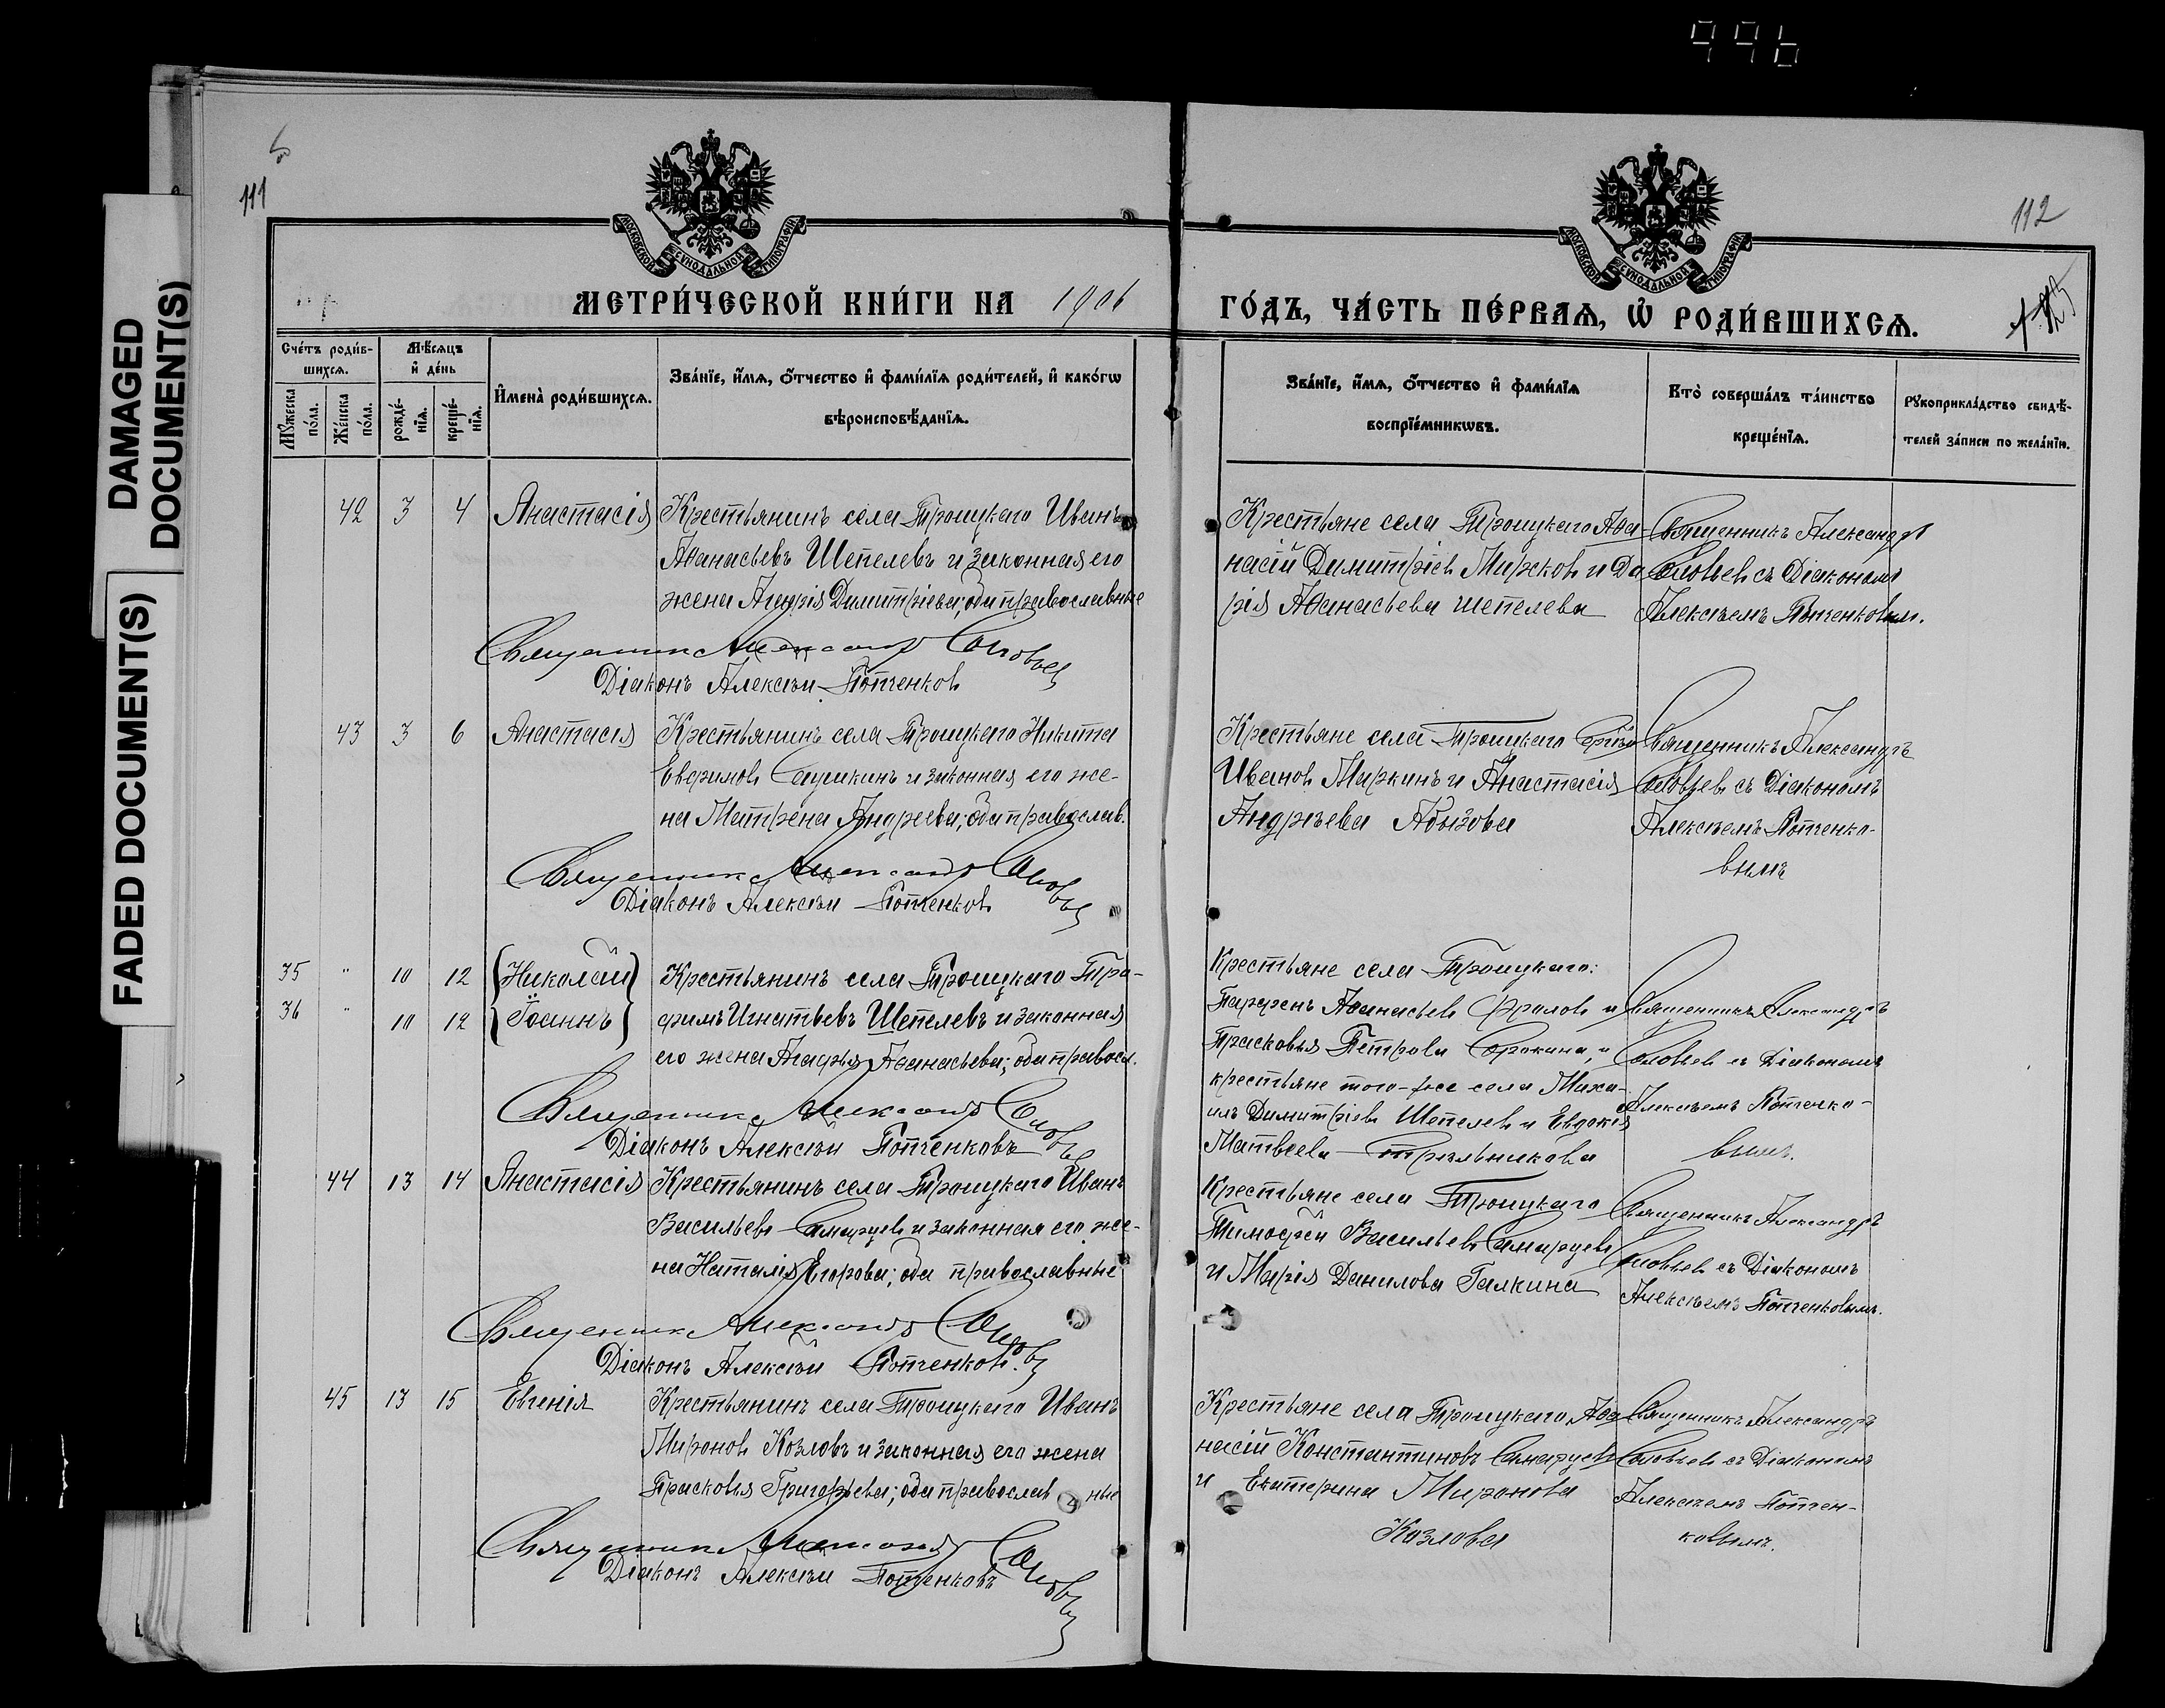 996
DAMAGED
DOCUMENT(S)
FADED DOCUMENT(S)
111
112
МОСКОВСКОЙ СѴНОДАЛЬНОЙ ТИПОГРАФІИ
МОСКОВСКОЙ СѴНОДАЛЬНОЙ ТИПОГРАФІИ
МЕТРИ́ЧЕСКОЙ КНИ́ГИ НА 1906
ГО́ДЪ, ЧА́СТЬ ПЕ́РВАѦ, Ѡ҆ РОДИ́ВШИХСѦ.
Сче́тъ роди́в-
шихсѧ.
Мѣ́сѧцъ
и҆ де́нь
Мꙋ́жеска
по́ла.
Же́нска
по́ла.
рожде́-
нїѧ.
креще́-
нїѧ.
И҆мена̀ роди́вшихсѧ.
Зва́нїе, и҆́мѧ, ѻ҆́тчество и҆ фами́лїѧ роди́телей, и҆ како́гѡ
вѣроисповѣ́данїѧ.
Зва́нїе, и҆́мѧ, ѻ҆́тчество и҆ фами́лїѧ
воспрїе́мникѡвъ.
Кто̀ соверша́лъ та́инство
креще́нїѧ.
Рꙋкоприкла́дство свидѣ́-
телей за́писи по жела́нїю.
42 3 4 Анастасія Крестьянинъ села Троицкаго Иванъ
Аѳанасьевъ Шепелевъ и законная его
жена Агафія Димитріева; оба православные
Священникъ Александръ Соловьев
Діаконъ Алексѣй Потченков
Крестьяне села Троицкаго Аѳа-
насій Димитріев Мирсков и Да
рія Аѳанасьева Шепелева
Священникъ Александръ
Соловьев съ Діакономъ
Алексѣемъ Потченковым.
43 3 6 Анастасія Крестьянинъ села Троицкаго Никита
Евфимов Сашкинъ и законная его же-
на Матрена Андреева; оба православ.
Священникъ Александръ Соловьев
Діаконъ Алексѣй Потченков
Крестьяне села Троицкаго Сергѣй
Иванов Миркинъ и Анастасія
Андрѣева Абызова
Священникъ Александръ
Соловьев съ Діакономъ
Алексѣемъ Потченко-
вымъ
35 " 10 12 Николай Крестьянинъ села Троицкаго Тро-
36 " 10 12 Іоаннъ фимъ Игнатьевъ Шепелевъ и законная
его жена Агафья Аѳанасьева; оба правосл.
Священникъ Александръ Соловьев
Діаконъ Алексѣй Потченковъ
Крестьяне села Троицкаго:
Парфенъ Аѳанасьев Фролов и
Прасковья Петрова Сорокина, и
крестьяне того-же села Миха-
илъ Димитріев Шепелев и Евдокія
Матвеева Трѣльникова
Священникъ Александръ
Соловьев съ Діакономъ
Алексѣемъ Потченко-
вымъ.
44 13 14 Анастасія Крестьянинъ села Троицкаго Иванъ
Васильев Самарцев и законная его же-
на Наталія Егорова; оба православные
Священникъ Александръ Соловьев
Діаконъ Алексѣй Потченков.
Крестьяне села Троицкаго
Тимофей Васильев Самарцев
и Марія Данилова Галкина
Священникъ Александръ
Соловьев съ Діакономъ
Алексѣемъ Потченковымъ.
45 13 15 Евгенія Крестьянинъ села Троицкаго Иванъ
Миронов Козловъ и законная его жена
Прасковья Григорьева; оба православные
Священникъ Александръ Соловьев
Діаконъ Алексѣй Потченковъ
Крестьяне села Троицкаго Аѳа
насій Константиновъ Самарцев
и Екатерина Миронова
Козлова
Священникъ Александръ
Соловьев съ Діакономъ
Алексѣемъ Потчен-
ковымъ.